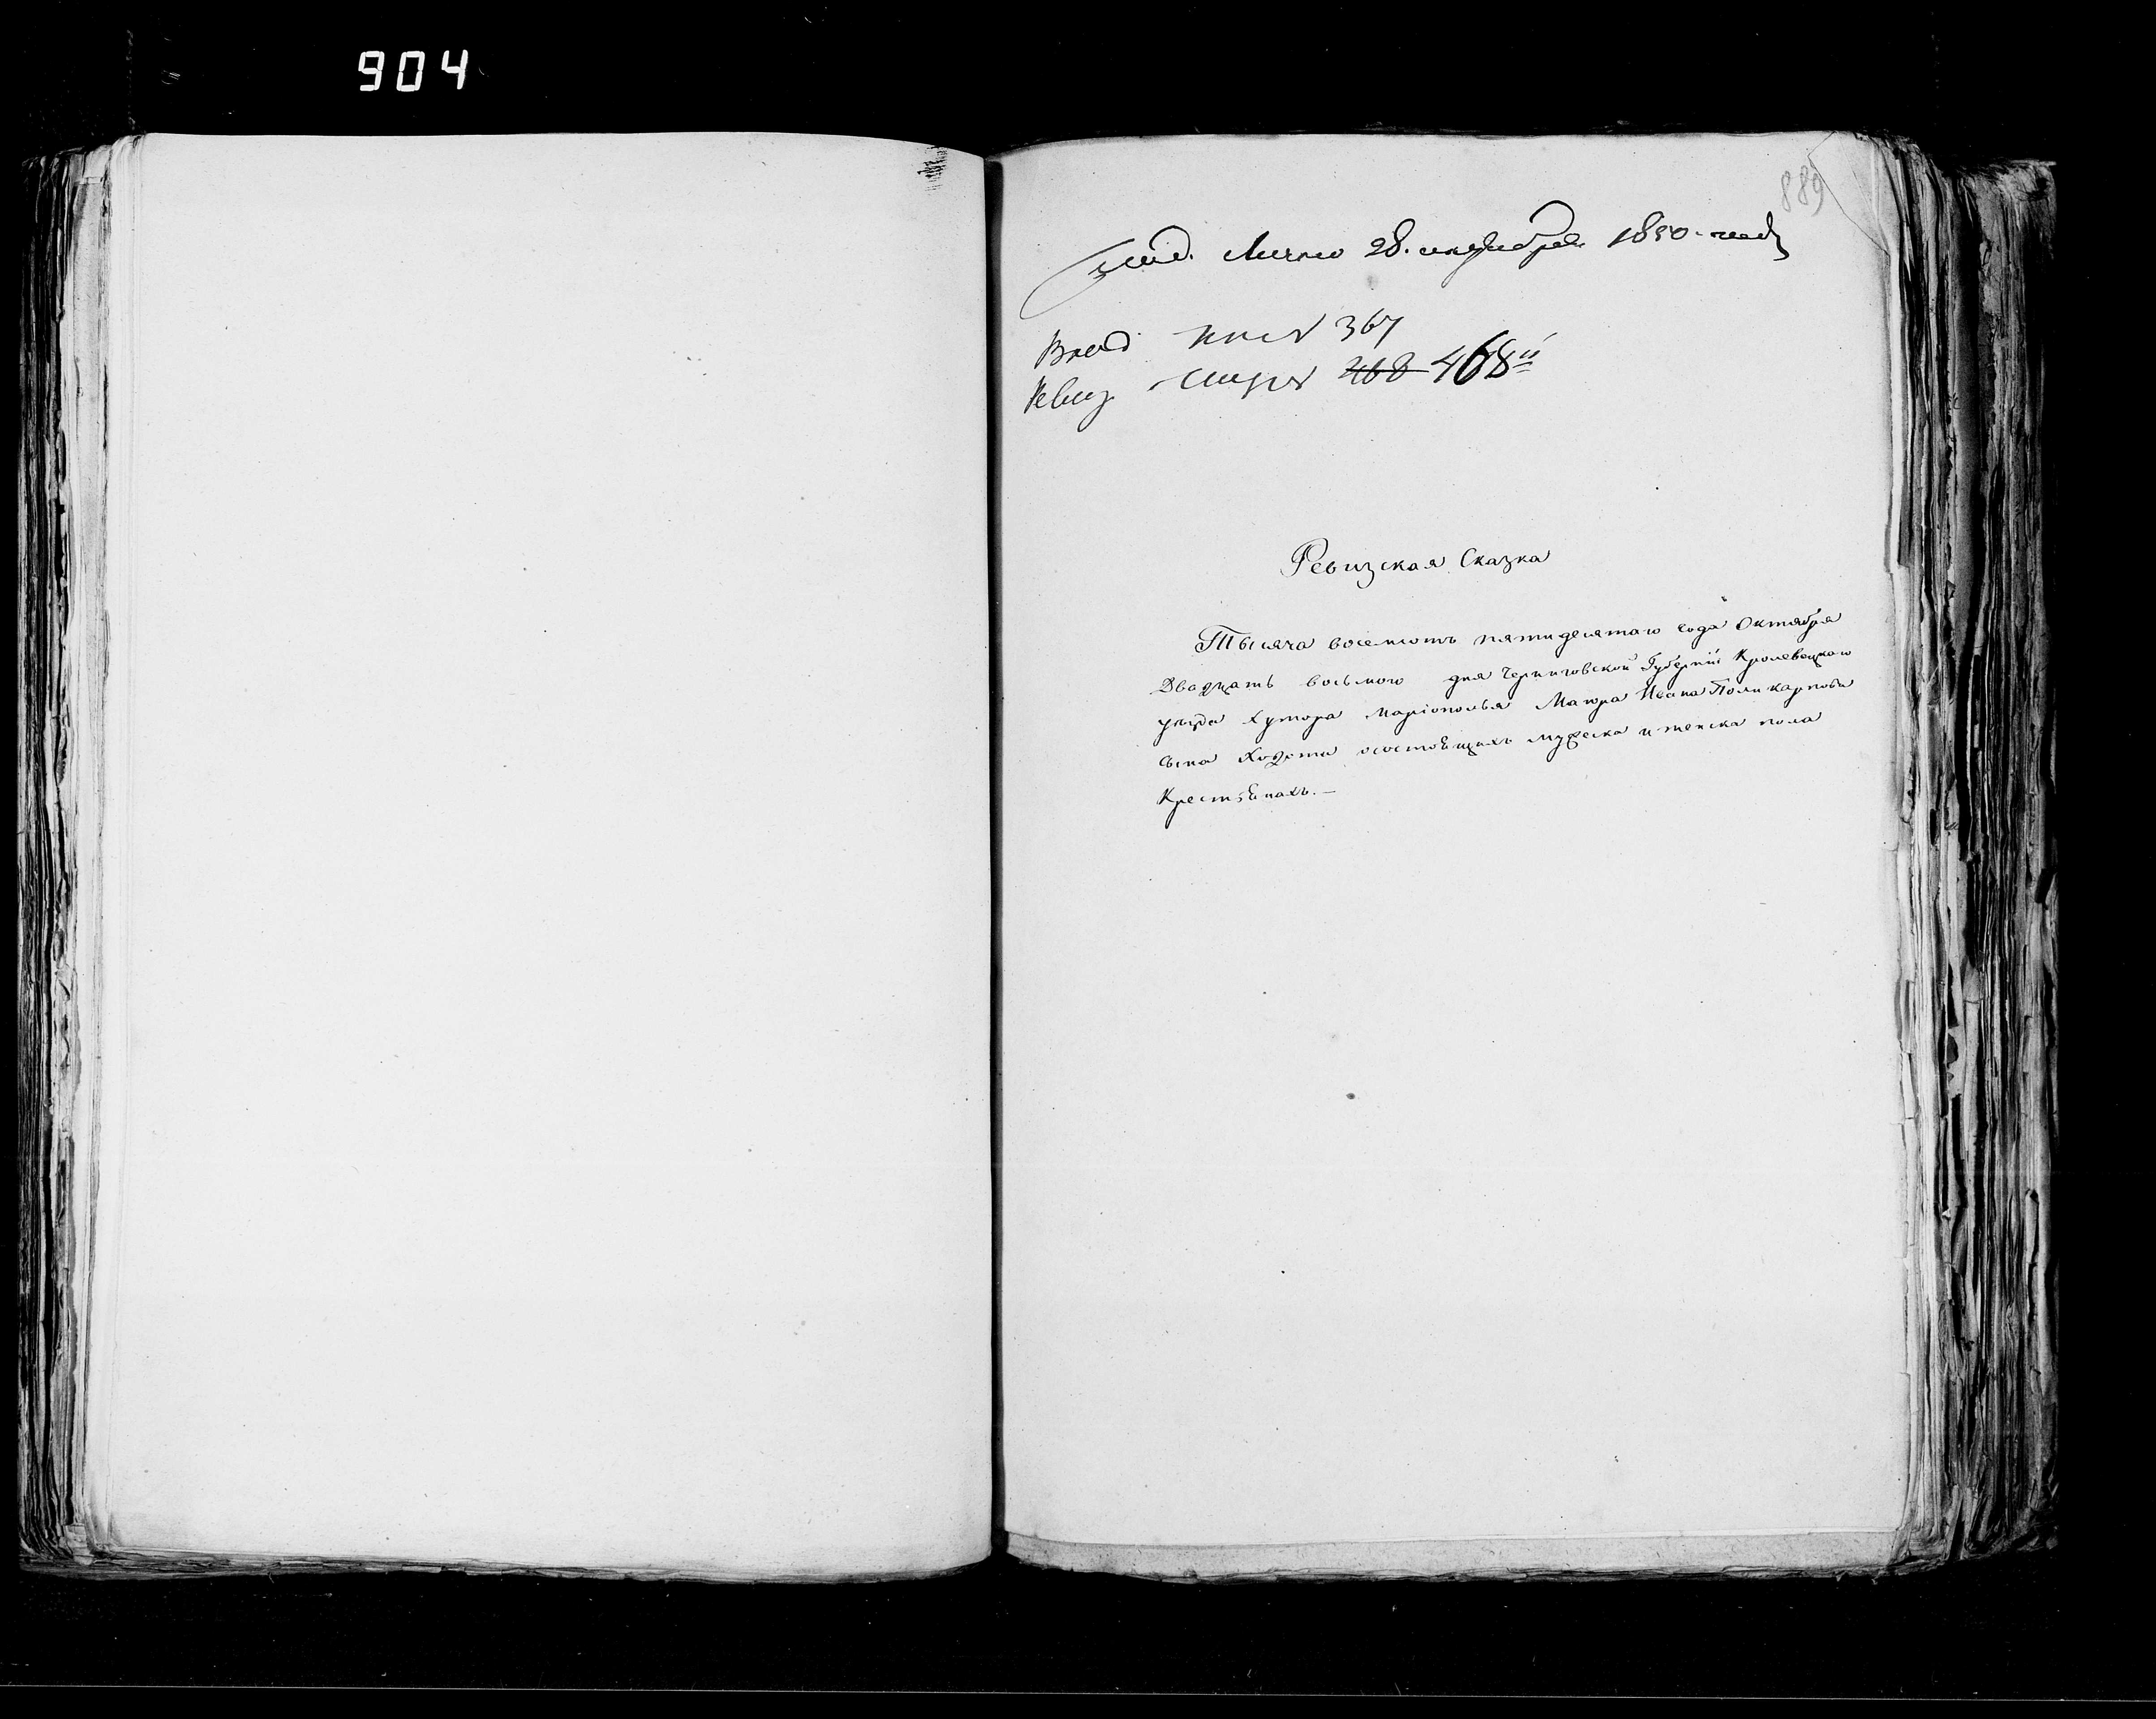 904
889
Лично 28. октября 1850. года
Вход № 367
Ревиз 268 468й
Ревизская Сказка
Тысяча восемсотъ пятидесятаго года Октября
Двадцать восьмого дня Черниговской Губерніи Кролевецкаго
уѣзда Хутора Маріополья Маіора Ивана Поликарпова
сына о состоящихъ мужеска и женска пола
Крестьянахъ.—